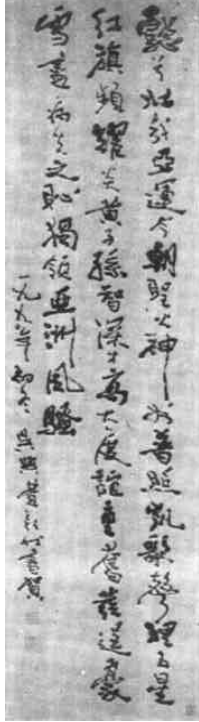 懿兮壯哉亞運今朝聖火神州普照凱歌聲裡五星
紅旗頻耀炎黃子孫智深才高大度誼重奮發逞豪
雪盡病夫之恥獨領亞洲風騷
一九九〇年初冬